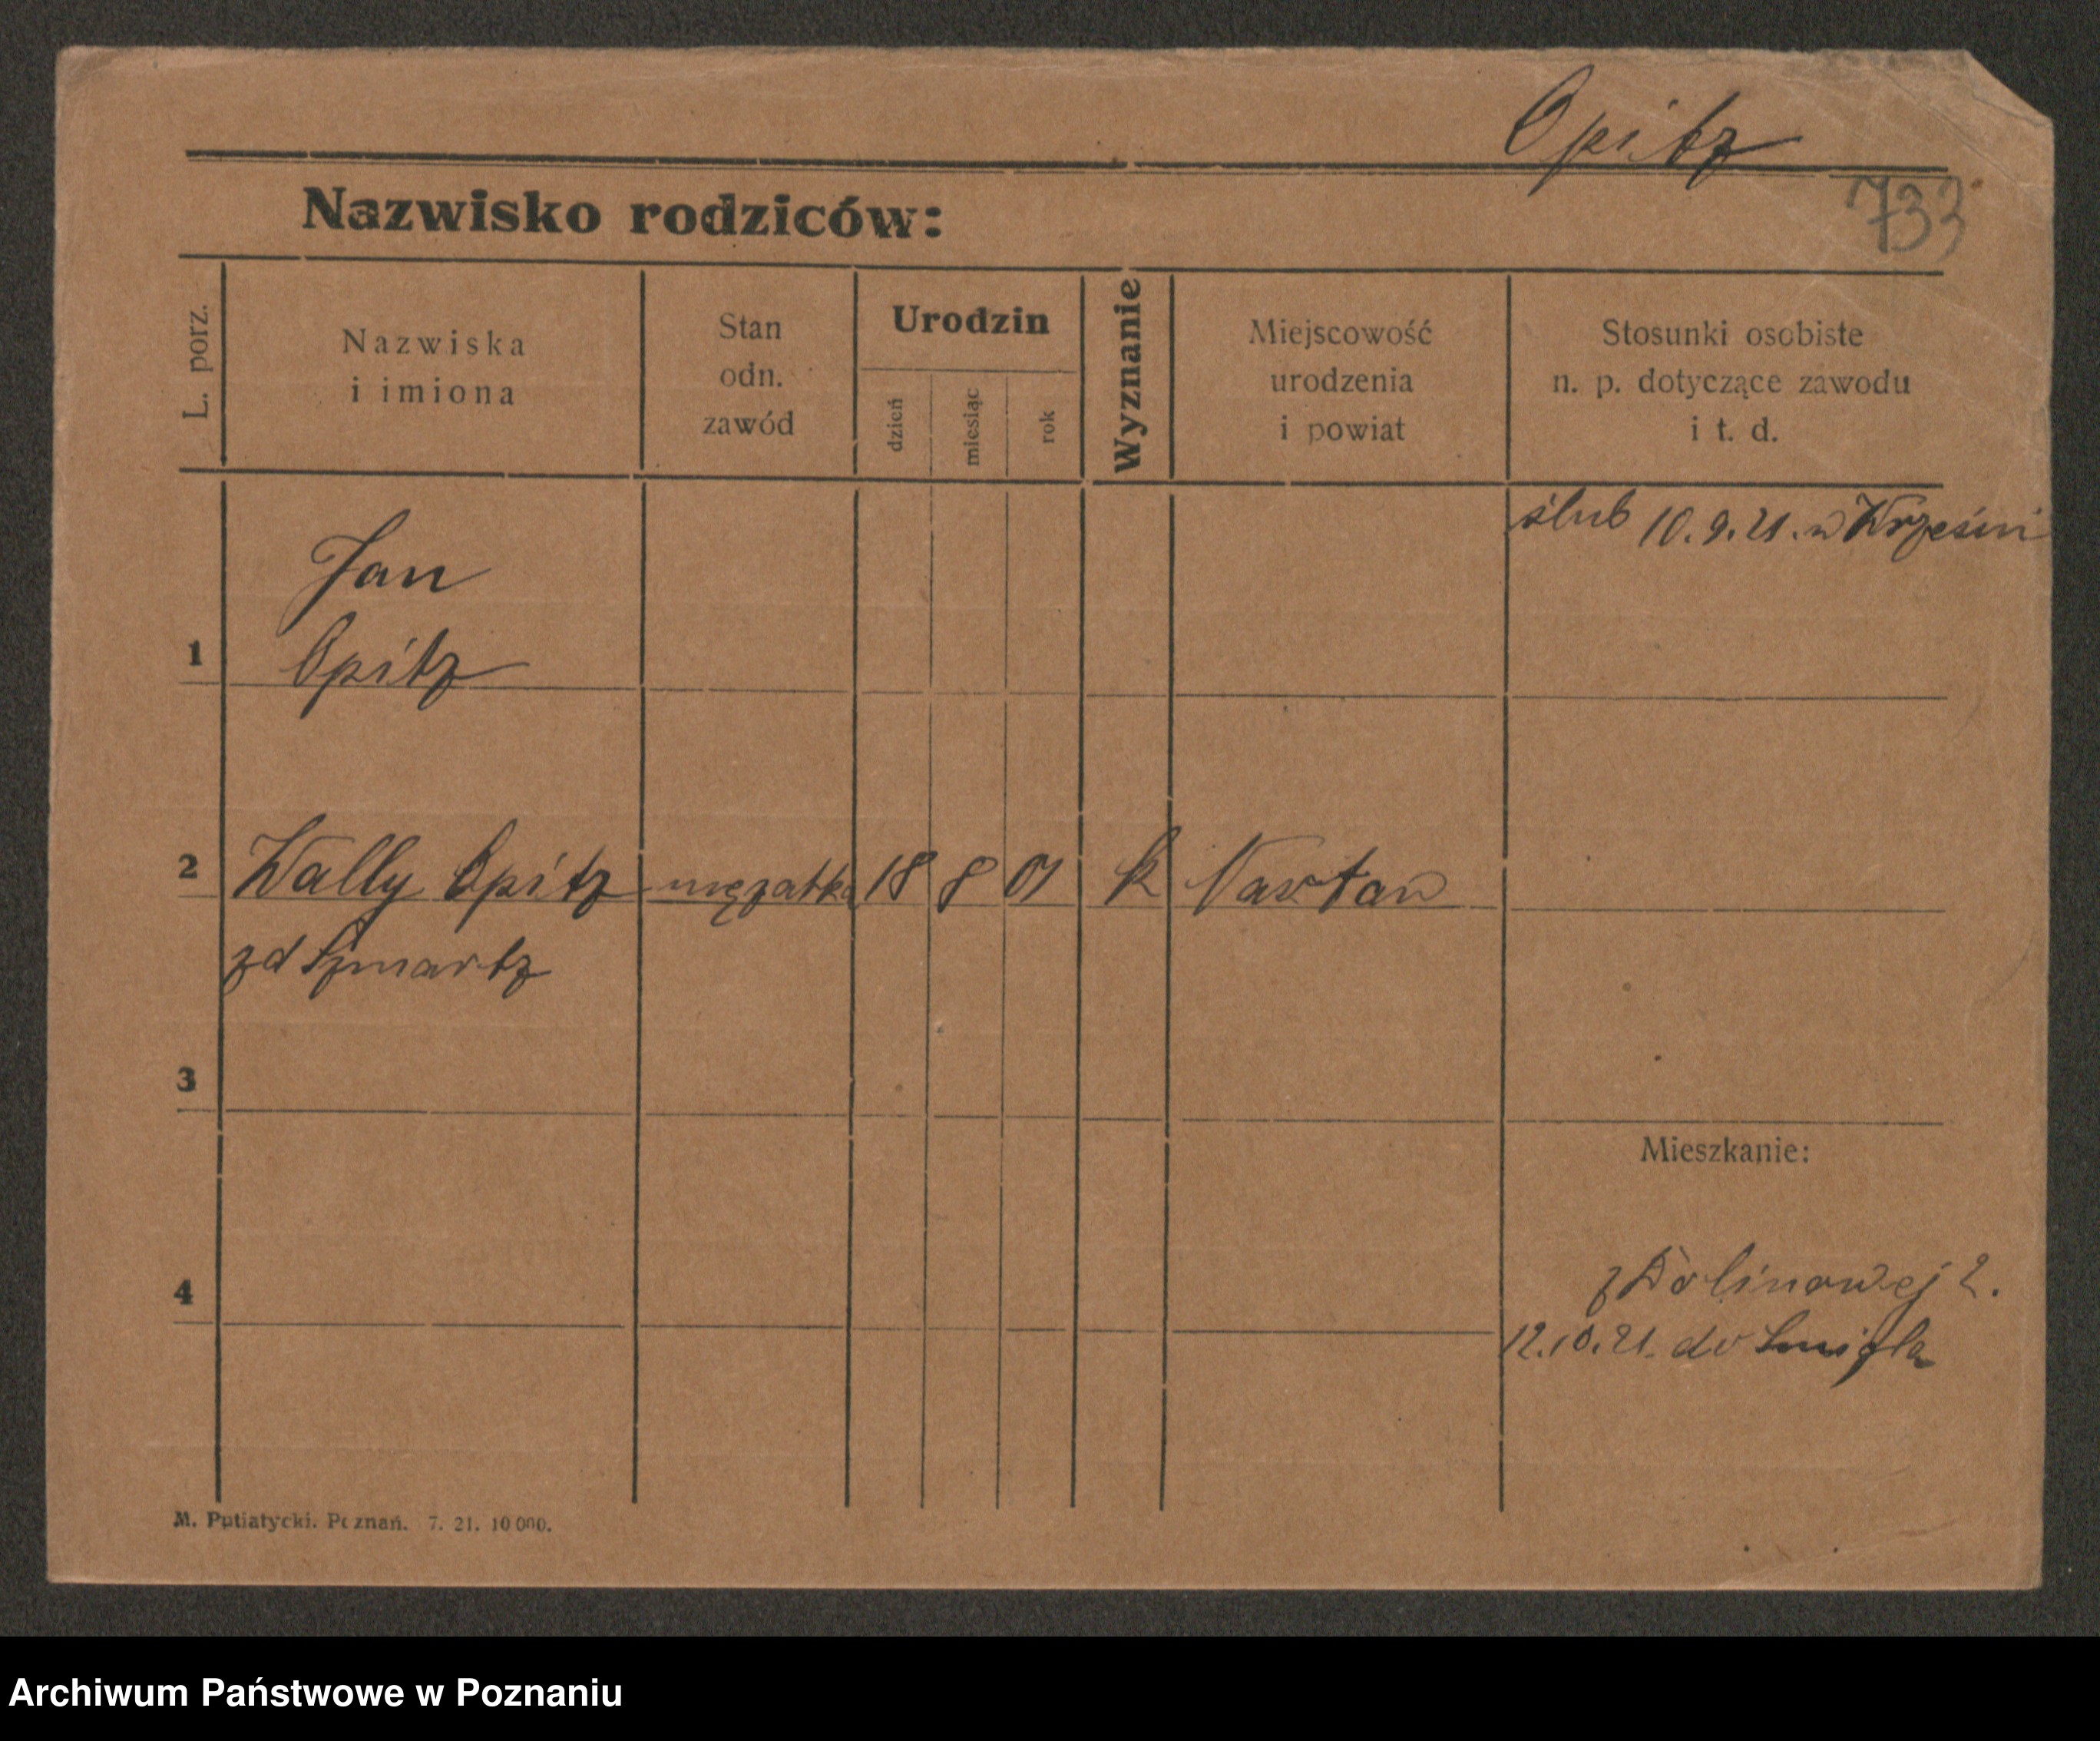 Opitz
733
Nazwisko rodziców:
L. porz.
Nazwiska
i imiona
Stan
odn.
zawód
Urodzin
dzień
miesiąc
rok
Wyznanie
Miejscowość
urodzenia
i powiat
Stosunki osobiste
n. p. dotyczące zawodu
i t. d.
ślub 10.9.21. w Wrześni
Jan
1 Opitz
2 Wally Opitz mężatka 18 8 01 k
zd
3
Mieszkanie:
4 z Dolinowej 2.
12.10.21. do Śmigla
M. Putiatycki. Poznań. 7. 21. 10 000.
Archiwum Państwowe w Poznaniu